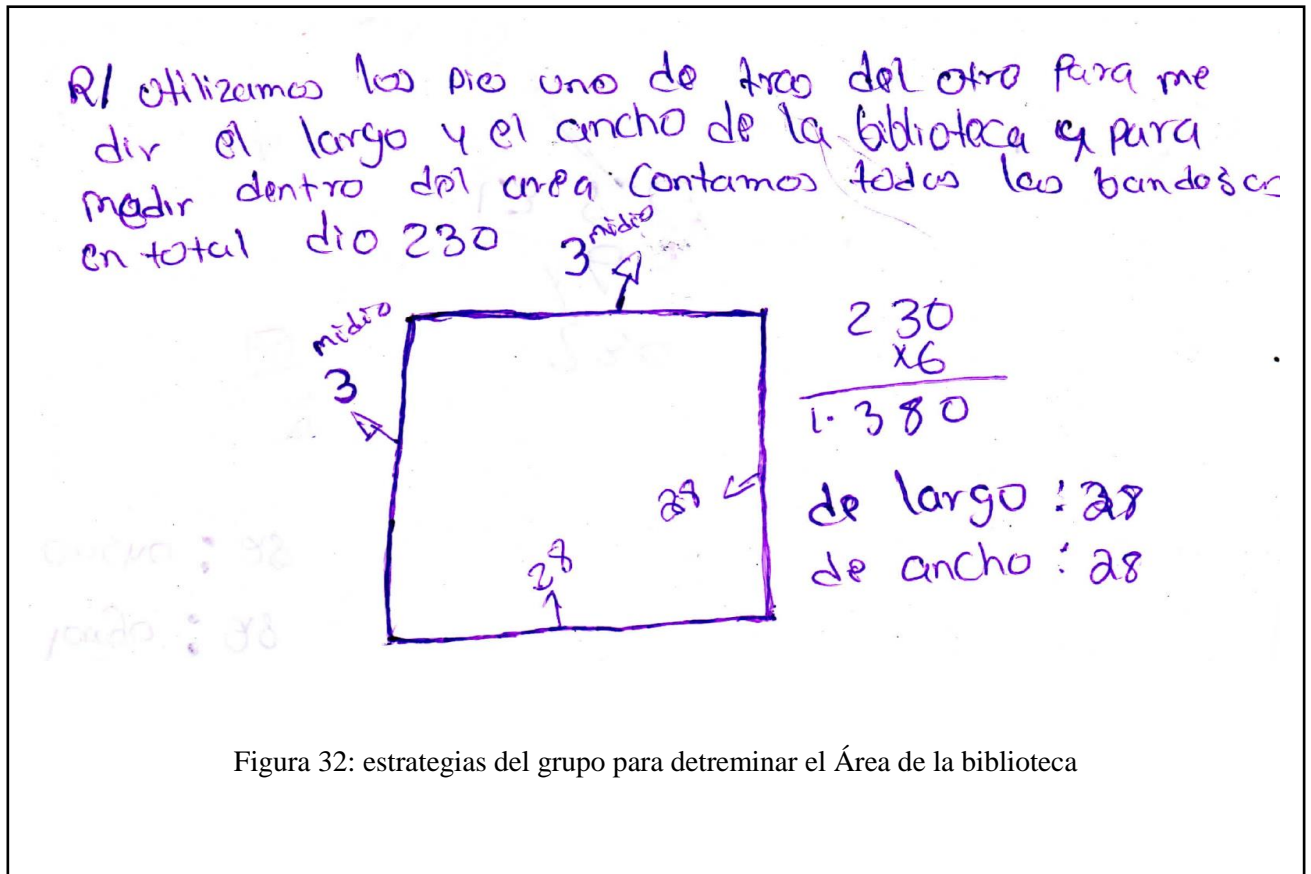 R/ Utilizamos los pie uno de tras del otro para me
dir el largo y el ancho de la biblioteca y para
medir dentro del area. Contamos todas las bandosas
en total dio 230
3 midio
midio
3
230
x6
1.380
28
28
de largo : 28
de ancho : 28
Figura 32: estrategias del grupo para detreminar el Área de la biblioteca